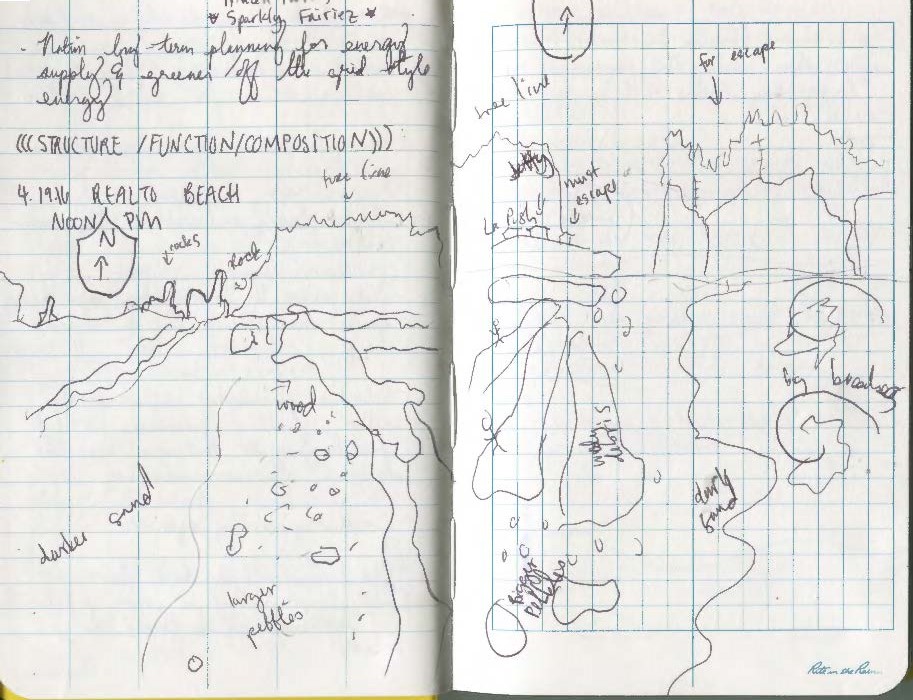 * Sparkly Fairiez *
- Notin long-term planning for energy
supply & greener / off the grid style
energy?
(((STRUCTURE /FUNCTION/COMPOSITION)))
4.19.16 REALTO BEACH
NOON PM
tree line
N
rocks
rock
wood
darker sand
larger
pebbles
for escape
tree line
jetty
must
escape
La Push
big breakers
woody
debris
dark
sand
bigger
pebbles
Rite in the Rain